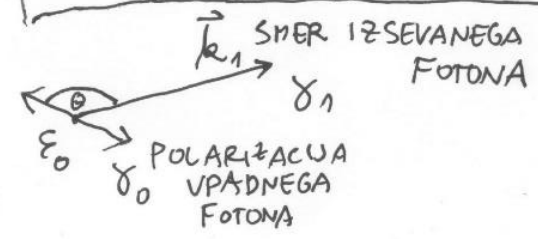 k₁ SMER IZSEVANEGA
FOTONA
γ₁
θ
ε₀ γ₀ POLARIZACIJA
VPADNEGA
FOTONA